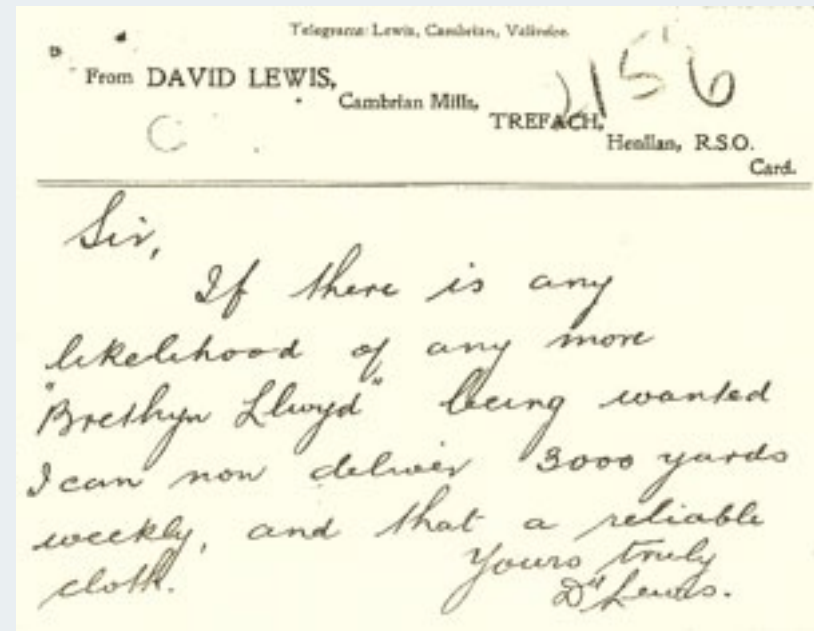 Telegrams: Lewis, Cambrian, Velindre.
From DAVID LEWIS,
Cambrian Mills,
TREFACH,
Henllan, R.S.O.
Card.
156
Sir,
If there is any
likelihood of any more
"Brethyn Llwyd" being wanted
I can now deliver 3000 yards
weekly, and that a reliable
cloth.
Yours truly
Dd Lewis.